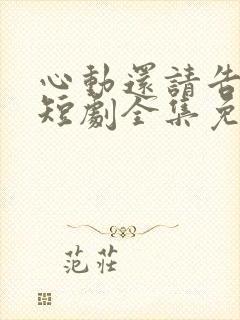 心動還請告
短劇全集免
范莊